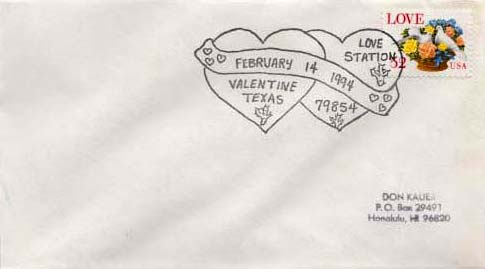 LOVE
52 USA
LOVE
STATION
FEBRUARY 14 1994
VALENTINE
TEXAS
79854
DON KAUER
P.O. Box 29491
Honolulu, HI 96820